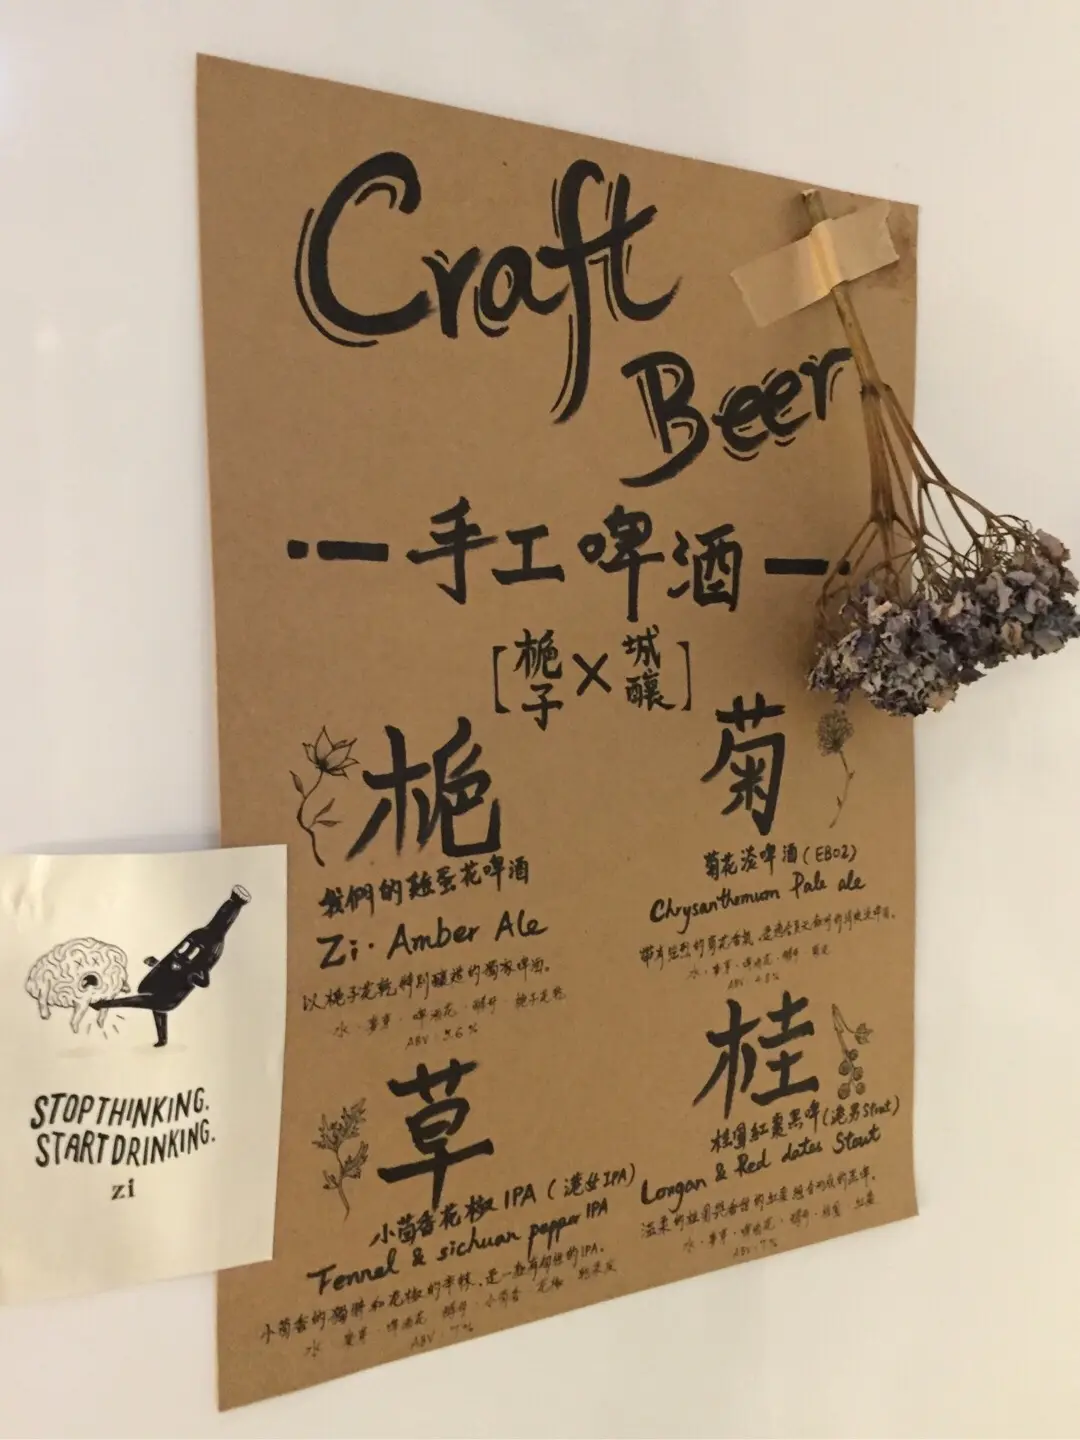 Craft
Beer
手工啤酒
[梔子×城釀]
梔
我們的雞蛋花啤酒
Zi. Amber Ale
以梔子花乾特別釀造的獨家啤酒。
水·麥芽·啤酒花·酵母·梔子花乾
ABV 5.6%
菊
菊花淡啤酒(EB02)
Chrysanthemum Pale ale
水·麥芽·啤酒花·酵母·菊花
ABV 4.8%
草
小茴香花椒IPA(港女IPA)
Fennel & sichuan pepper IPA
小茴香的獨特和花椒的辛辣,是一款有個性的IPA。
水·麥芽·啤酒花·酵母·小茴香·花椒
ABV 7%
桂
桂圓紅棗黑啤(港男Stout)
Longan & Red dates Stout
水·麥芽·啤酒花·酵母·桂圓·紅棗
ABV 7%
STOP THINKING.
START DRINKING.
zi